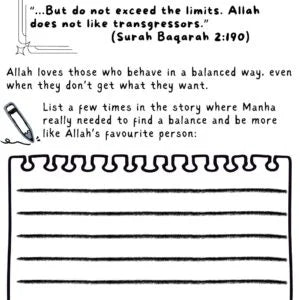 "...But do not exceed the limits. Allah
does not like transgressors."
(Surah Baqarah 2:190)
Allah loves those who behave in a balanced way, even
when they don't get what they want.
List a few times in the story where Manha
really needed to find a balance and be more
like Allah's favourite person: